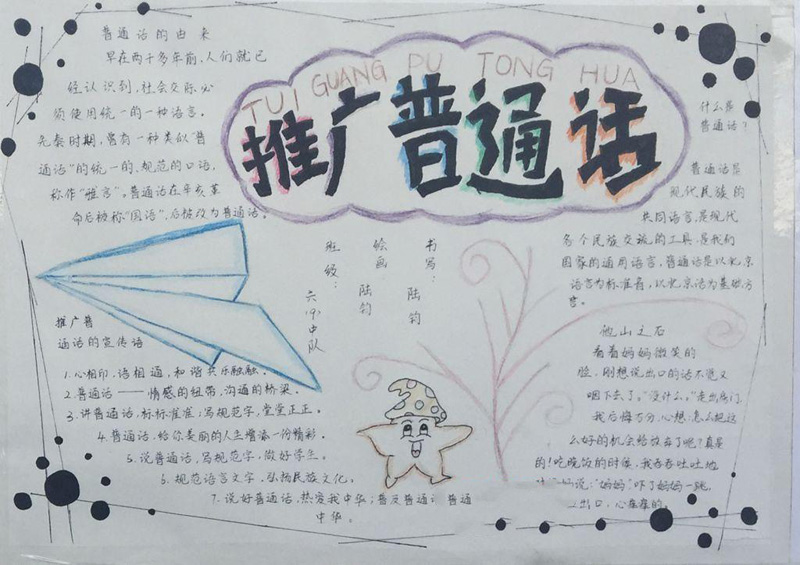 TUI GUANG PU TONG HUA
推广普通话
普通话的由来
早在两千多年前,人们就已
经认识到,社会交际必
须使用统一的一种语言。
先秦时期,曾有一种类似"普
通话"的统一的、规范的口语,
称作"雅言"。普通话在辛亥革
命后被称"国语",后被改为普通话。
什么是
普通话?
普通话是
现代民族的
共同语言,是现代
各个民族交流的工具,是我们
国家的通用语言,普通话是以北京
语言为标准音,以北京话为基础方
言。
书写:陆钧
绘画:陆钧
班级:六(9)中队
推广普
通话的宣传语
1.心相印,语相通,和谐共乐融融。
2.普通话——情感的纽带,沟通的桥梁。
3.讲普通话,标标准准,写规范字,堂堂正正。
4.普通话,给你美丽的人生增添一份精彩。
5.说普通话,写规范字,做好学生。
6.规范语言文字,弘扬民族文化。
7.说好普通话,热爱我中华;普及普通 普通
中华。
他山之石
看着妈妈微笑的
脸,刚想说出口的话不觉又
咽下去了。"没什么。"走出房门,
我后悔万分,心想:怎么把这
么好的机会给放弃了呢?真是
的!吃晚饭的时候,我吞吞吐吐地
妈说:"妈妈"吓了妈妈一跳,
出口,心